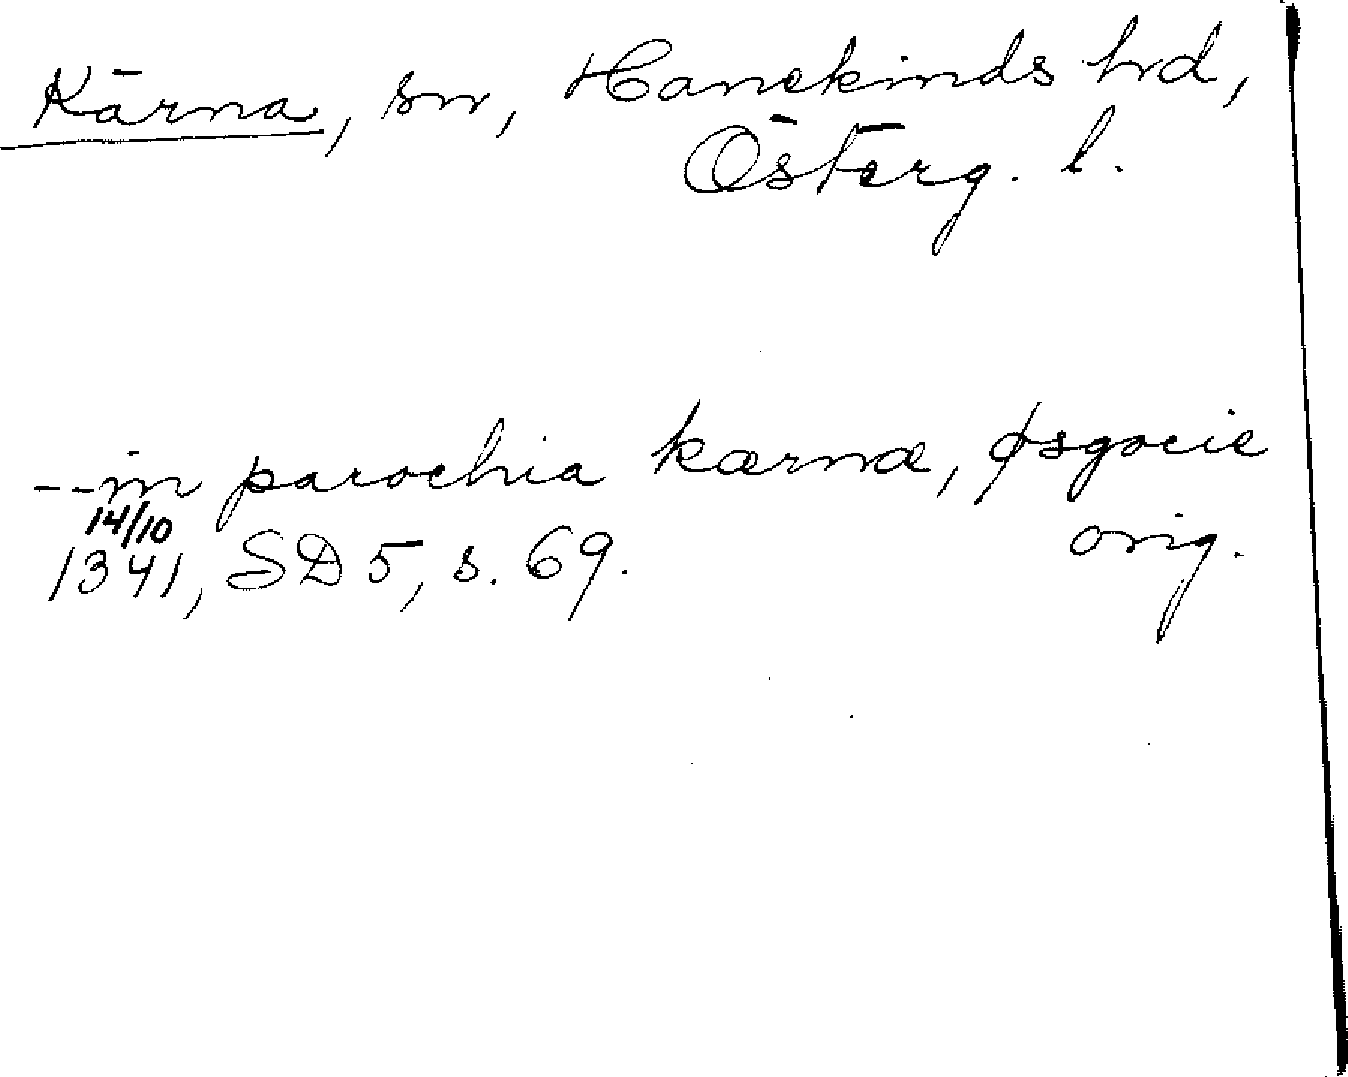 Kärna, sn, Hanekinds hrd,
Österg. l.
--in parochia kærnæ, øsgocie
14/10
1341, SD 5, s. 69. orig.